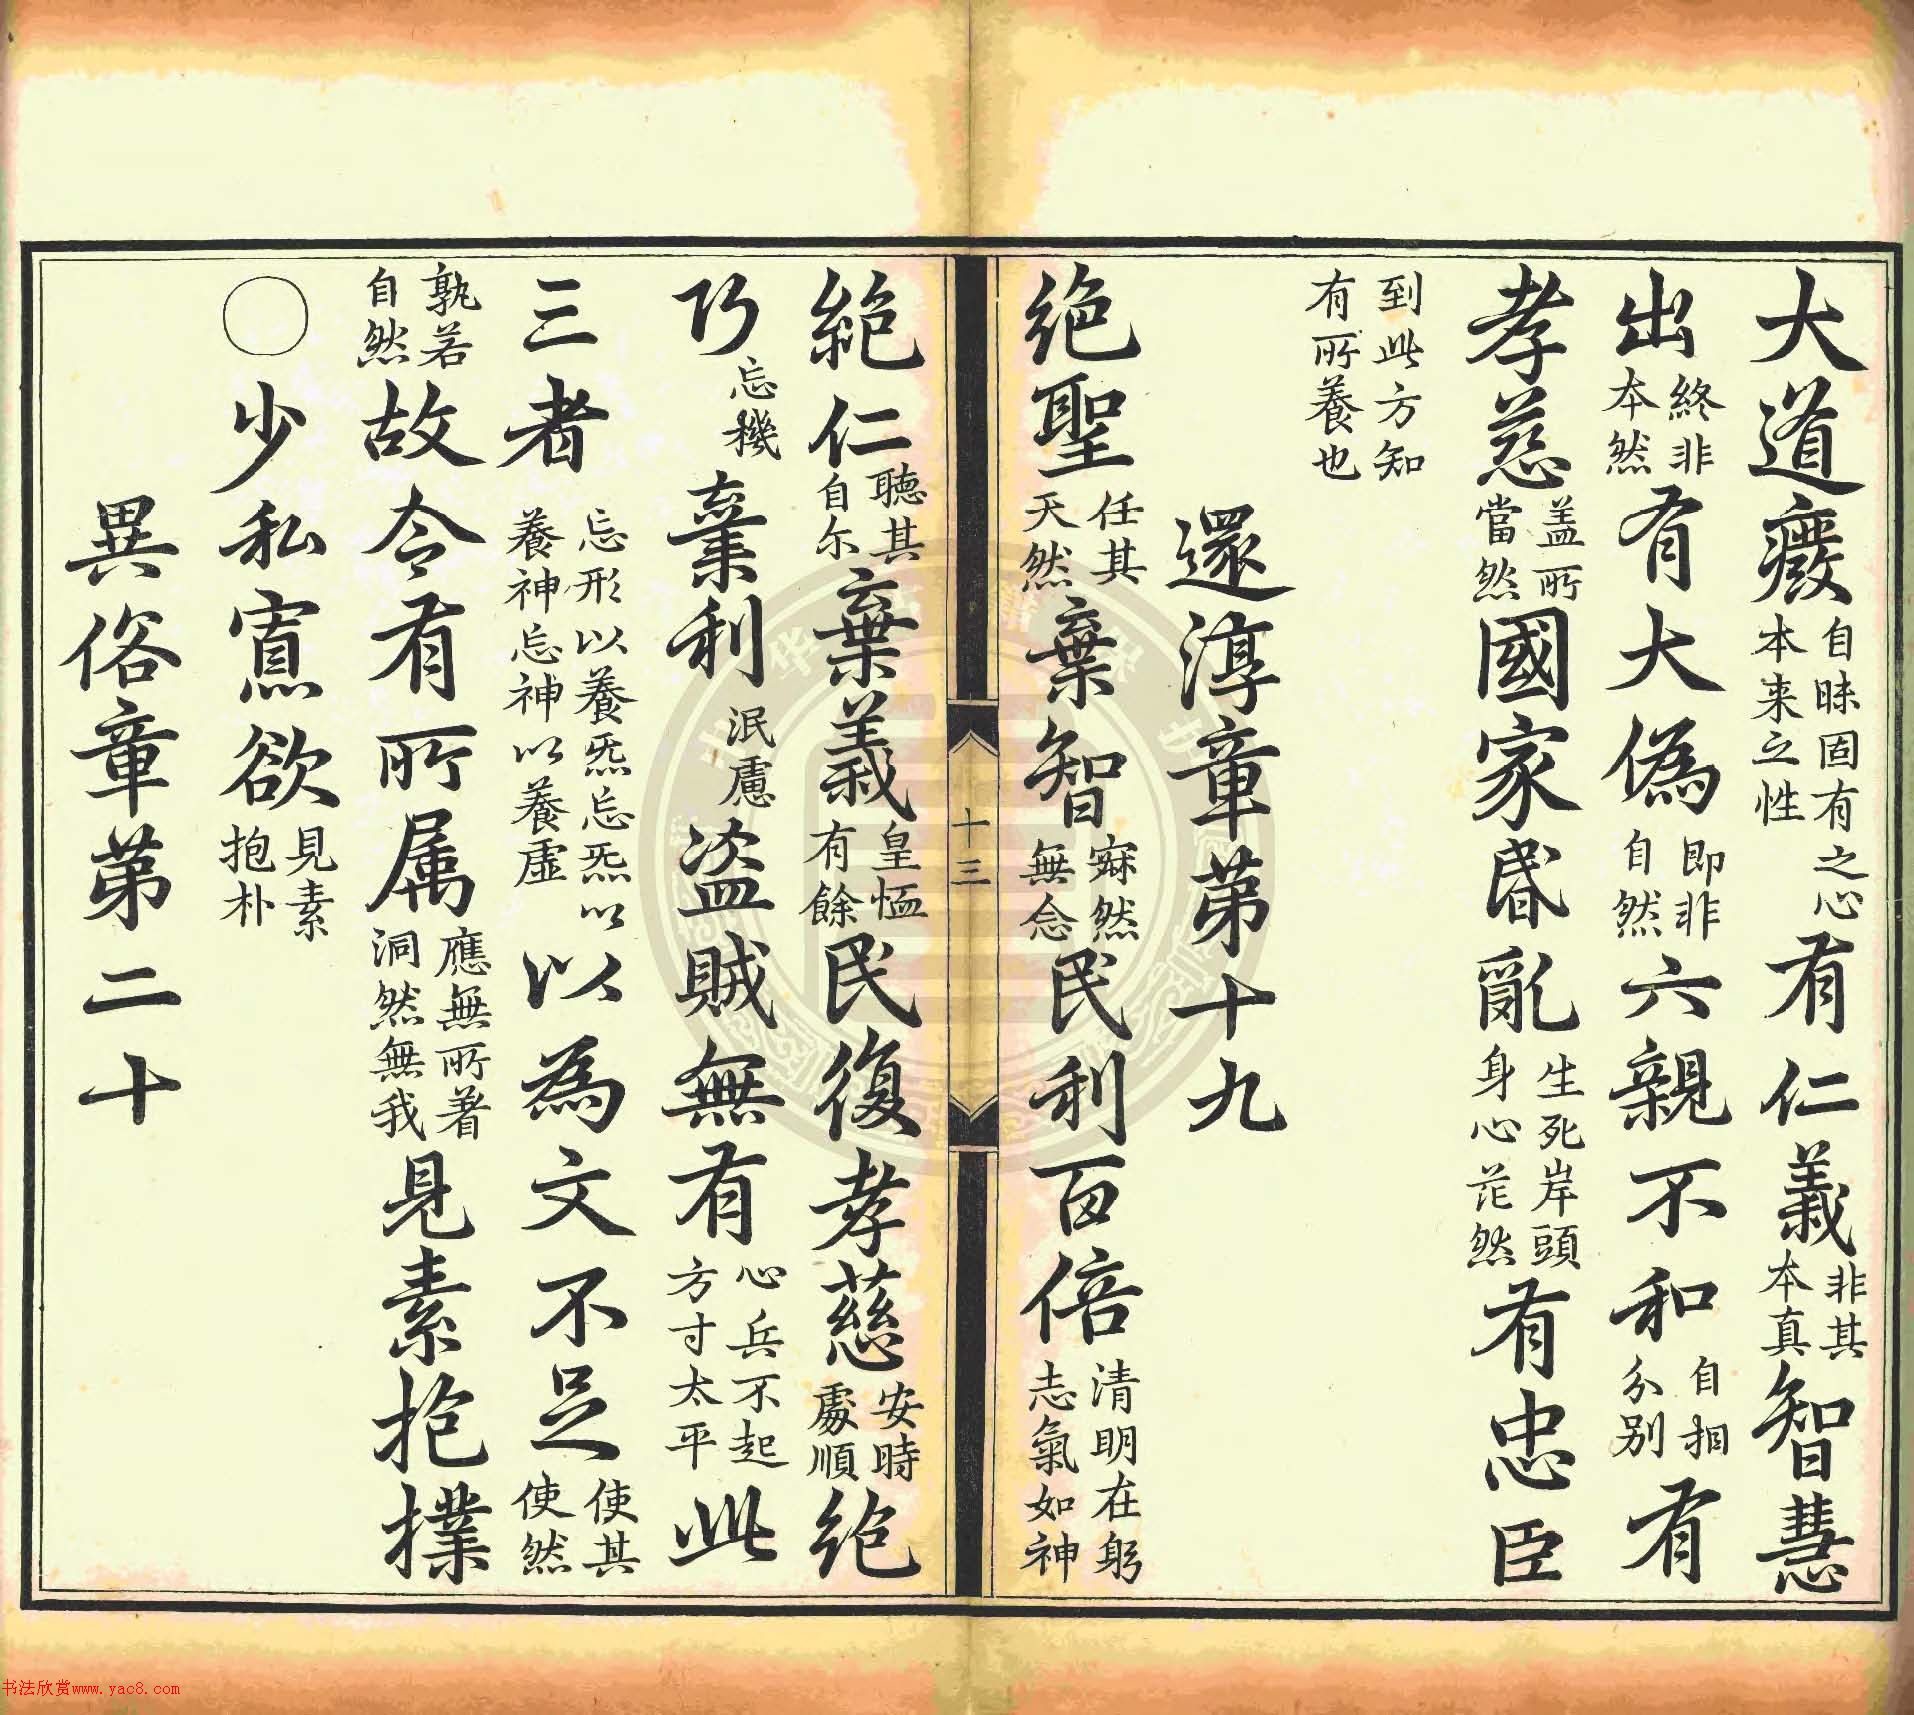 大道癈自昧固有之心本来之性有仁義非其本真智慧
出終非本然有大偽即非自然六親不和自相分别有
孝慈盖所當然國家昬亂生死岸頭身心茫然有忠臣
到此方知有所養也
還淳章第十九
絶聖任其天然棄智寂然無念民利百倍清明在躬志氣如神
十三
絶仁聽其自尔棄義皇恤有餘民復孝慈安時處順絶
巧忘機棄利泯慮盗賊無有心兵不起方寸太平此
三者忘形以養炁忘炁以養神忘神以養虛以為文不足使其使然
孰若自然故令有所属應無所著洞然無我見素抱撲
〇少私寡欲見素抱朴
異俗章第二十
书法欣赏www.yac8.com